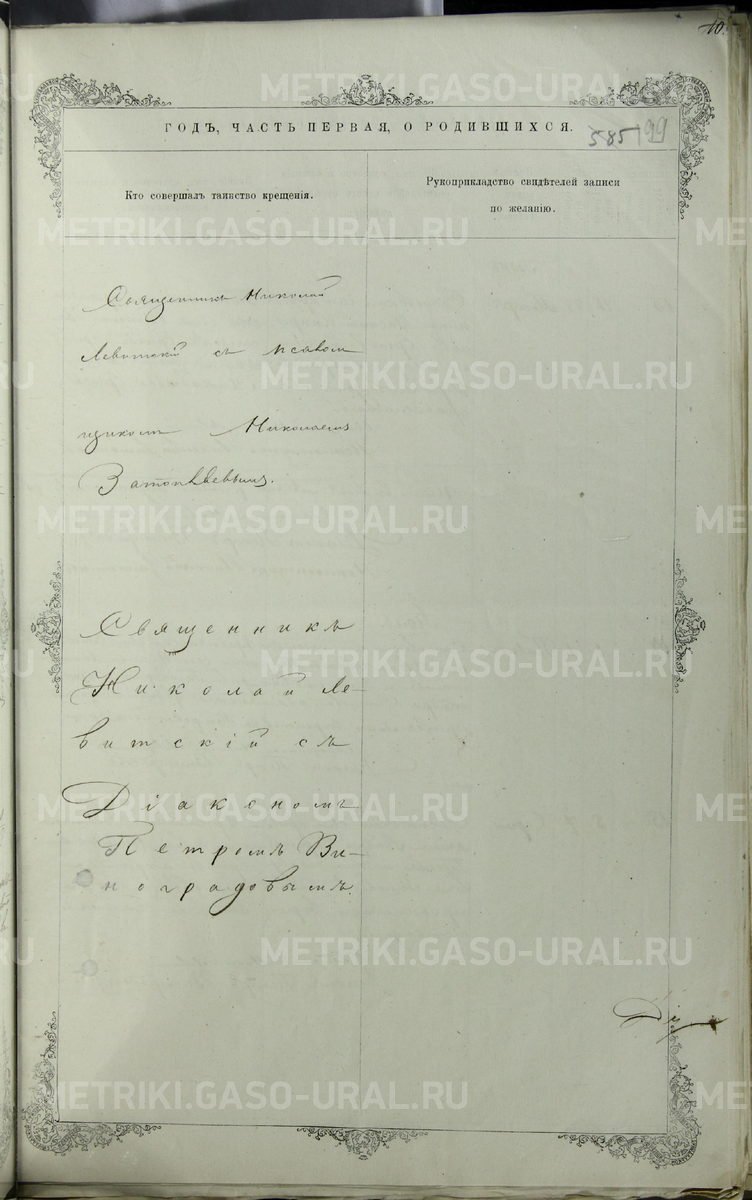 10.
ГОДЪ, ЧАСТЬ ПЕРВАЯ, О РОДИВШИХСЯ.
585 99
Кто совершалъ таинство крещенія.
Рукоприкладство свидѣтелей записи
по желанію.
Священникъ Николай
Левитскій съ псалом
щикомъ Николаемъ
Священникъ
Николай Ле-
витскій съ
Діакономъ
Петромъ Ви-
ноградовымъ.
METRIKI.GASO-URAL.RU